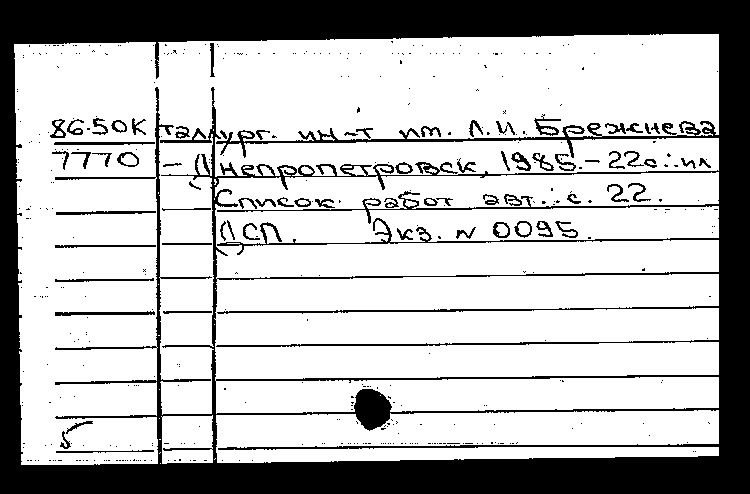 86-50К таллург. ин-т им. Л.И. Брежнева
7770 – Днепропетровск, 1985. – 22с.: ил
Список работ авт.: с. 22.
ДСП. Экз. N 0095.
5